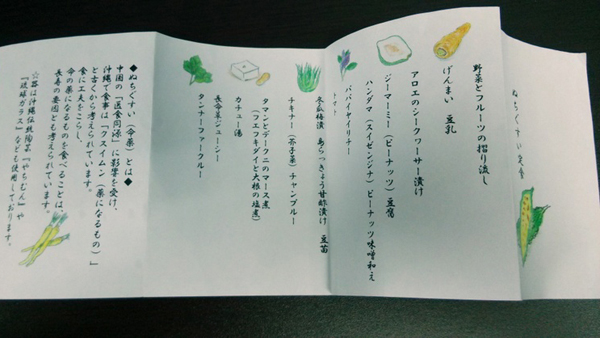 ぬちぐすい定食
野菜とフルーツの摺り流し
げんまい　豆乳
アロエのシークヮーサー漬け
ジーマーミー（ピーナッツ）豆腐
ハンダマ（スイゼンジナ）ピーナッツ味噌和え
パパイヤイリチー
トマト
冬瓜梅漬　島らっきょう甘酢漬け　豆苗
チキナー（芥子菜）チャンプルー
タマンとデークニのマース煮
（フエフキダイと大根の塩煮）
カチュー湯
長命草ジューシー
タンナファークルー
◆ぬちぐすい（命薬）とは◆
中国の「医食同源」に影響を受け、
沖縄で食事は「クスイムン（薬になるもの）」
と古くから考えられています。
食に工夫をこらし、
命の薬になるものを食べることは、
長寿の要因とも考えられています。
☆器は沖縄伝統陶芸『やちむん』や
『琉球ガラス』なども使用しております。